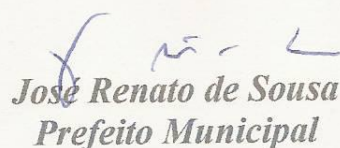 José Renato de Sousa
Prefeito Municipal